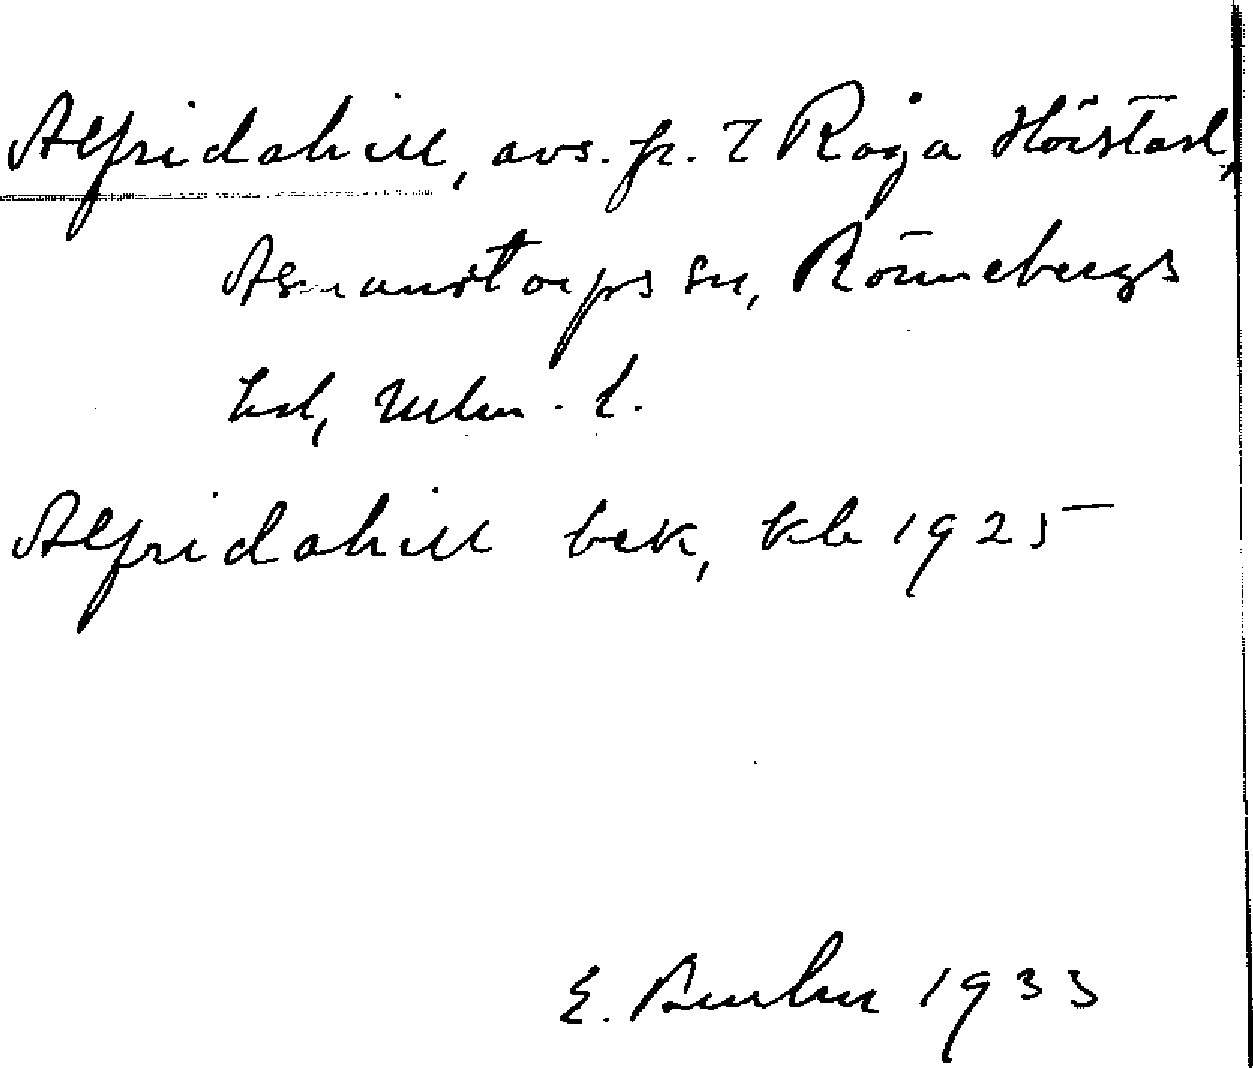 Alfridahill, avs. fr. 7 Råga Hörstad,
Asmundtorps sn, Rönnebergs
hd, Mlm. l.
Alfridahill bek, kb 1925
E. 1933